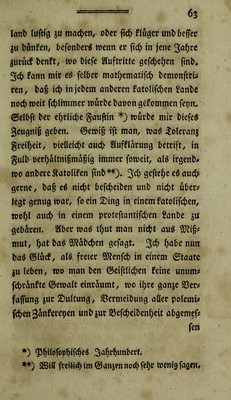 63
land lustig zu machen, oder sich klüger und besser
zu dünken, besonders wenn er sich in jene Jahre
zurück denkt, wo diese Auftritte geschehen sind.
Ich kann mir es selber mathematisch demonstri-
ren, daß ich in jedem anderen katolischen Lande
noch weit schlimmer würde davon gekommen seyn.
Selbst der ehrliche Faustin *) würde mir dieses
Zeugniß geben. Gewiß ist man, was Toleranz
Freiheit, vielleicht auch Aufklärung betrift, in
Fuld verhältnißmäßig immer soweit, als irgend-
wo andere Katoliken sind **). Ich gestehe es auch
gerne, daß es nicht bescheiden und nicht über-
legt genug war, so ein Ding in einem katolischen,
wohl auch in einem protestantischen Lande zu
gebären. Aber was thut man nicht aus Miß-
mut, hat das Mädchen gesagt. Ich habe nun
das Glück, als freier Mensch in einem Staate
zu leben, wo man den Geistlichen keine unum-
schränkte Gewalt einräumt, wo ihre ganze Ver-
fassung zur Dultung, Vermeidung aller polemi-
schen Zänkereyen und zur Bescheidenheit abgemes-
sen
*) Philosophisches Jahrhundert.
**) Will freilich im Ganzen noch sehr wenig sagen.